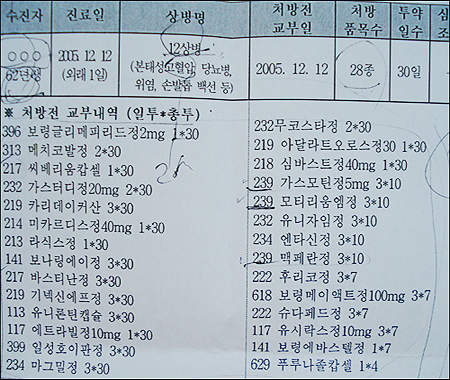 수진자 진료일 상병명 처방전 교부일 처방 품목수 투약 일수 심 조
○○○ 62년생 2005. 12. 12 (외래 1일) 12상병 (본태성고혈압, 당뇨병, 위염, 손발톱 백선 등) 2005. 12. 12 28종 30일
※ 처방전 교부내역 (일투*총투)
396 보령글리메피리드정2mg 1*30
313 메치코발정 2*30
217 씨베리움캅셀 1*30
232 가스터디정20mg 2*30
219 카리데이카산 3*30
214 미카르디스정40mg 1*30
213 라식스정 1*30
141 보나링에이정 3*30
217 바스티난정 3*30
219 기넥신에프정 3*30
113 유니론틴캡슐 3*30
117 에트라빌정10mg 1*30
399 일성호이판정 3*30
234 마그밀정 3*30
232무코스타정 2*30
219 아달라트오로스정30 1*30
218 심바스트정40mg 1*30
239 가스모틴정5mg 3*10
239 모티리움엠정 3*10
232 유니자임정 3*10
234 엔타신정 3*10
239 맥페란정 3*10
222 후리코정 3*7
618 보령메이액트정100mg 3*7
222 슈다페드정 3*7
117 유시락스정10mg 3*7
141 보령에바스텔정 1*7
629 푸루나졸캅셀 1*4